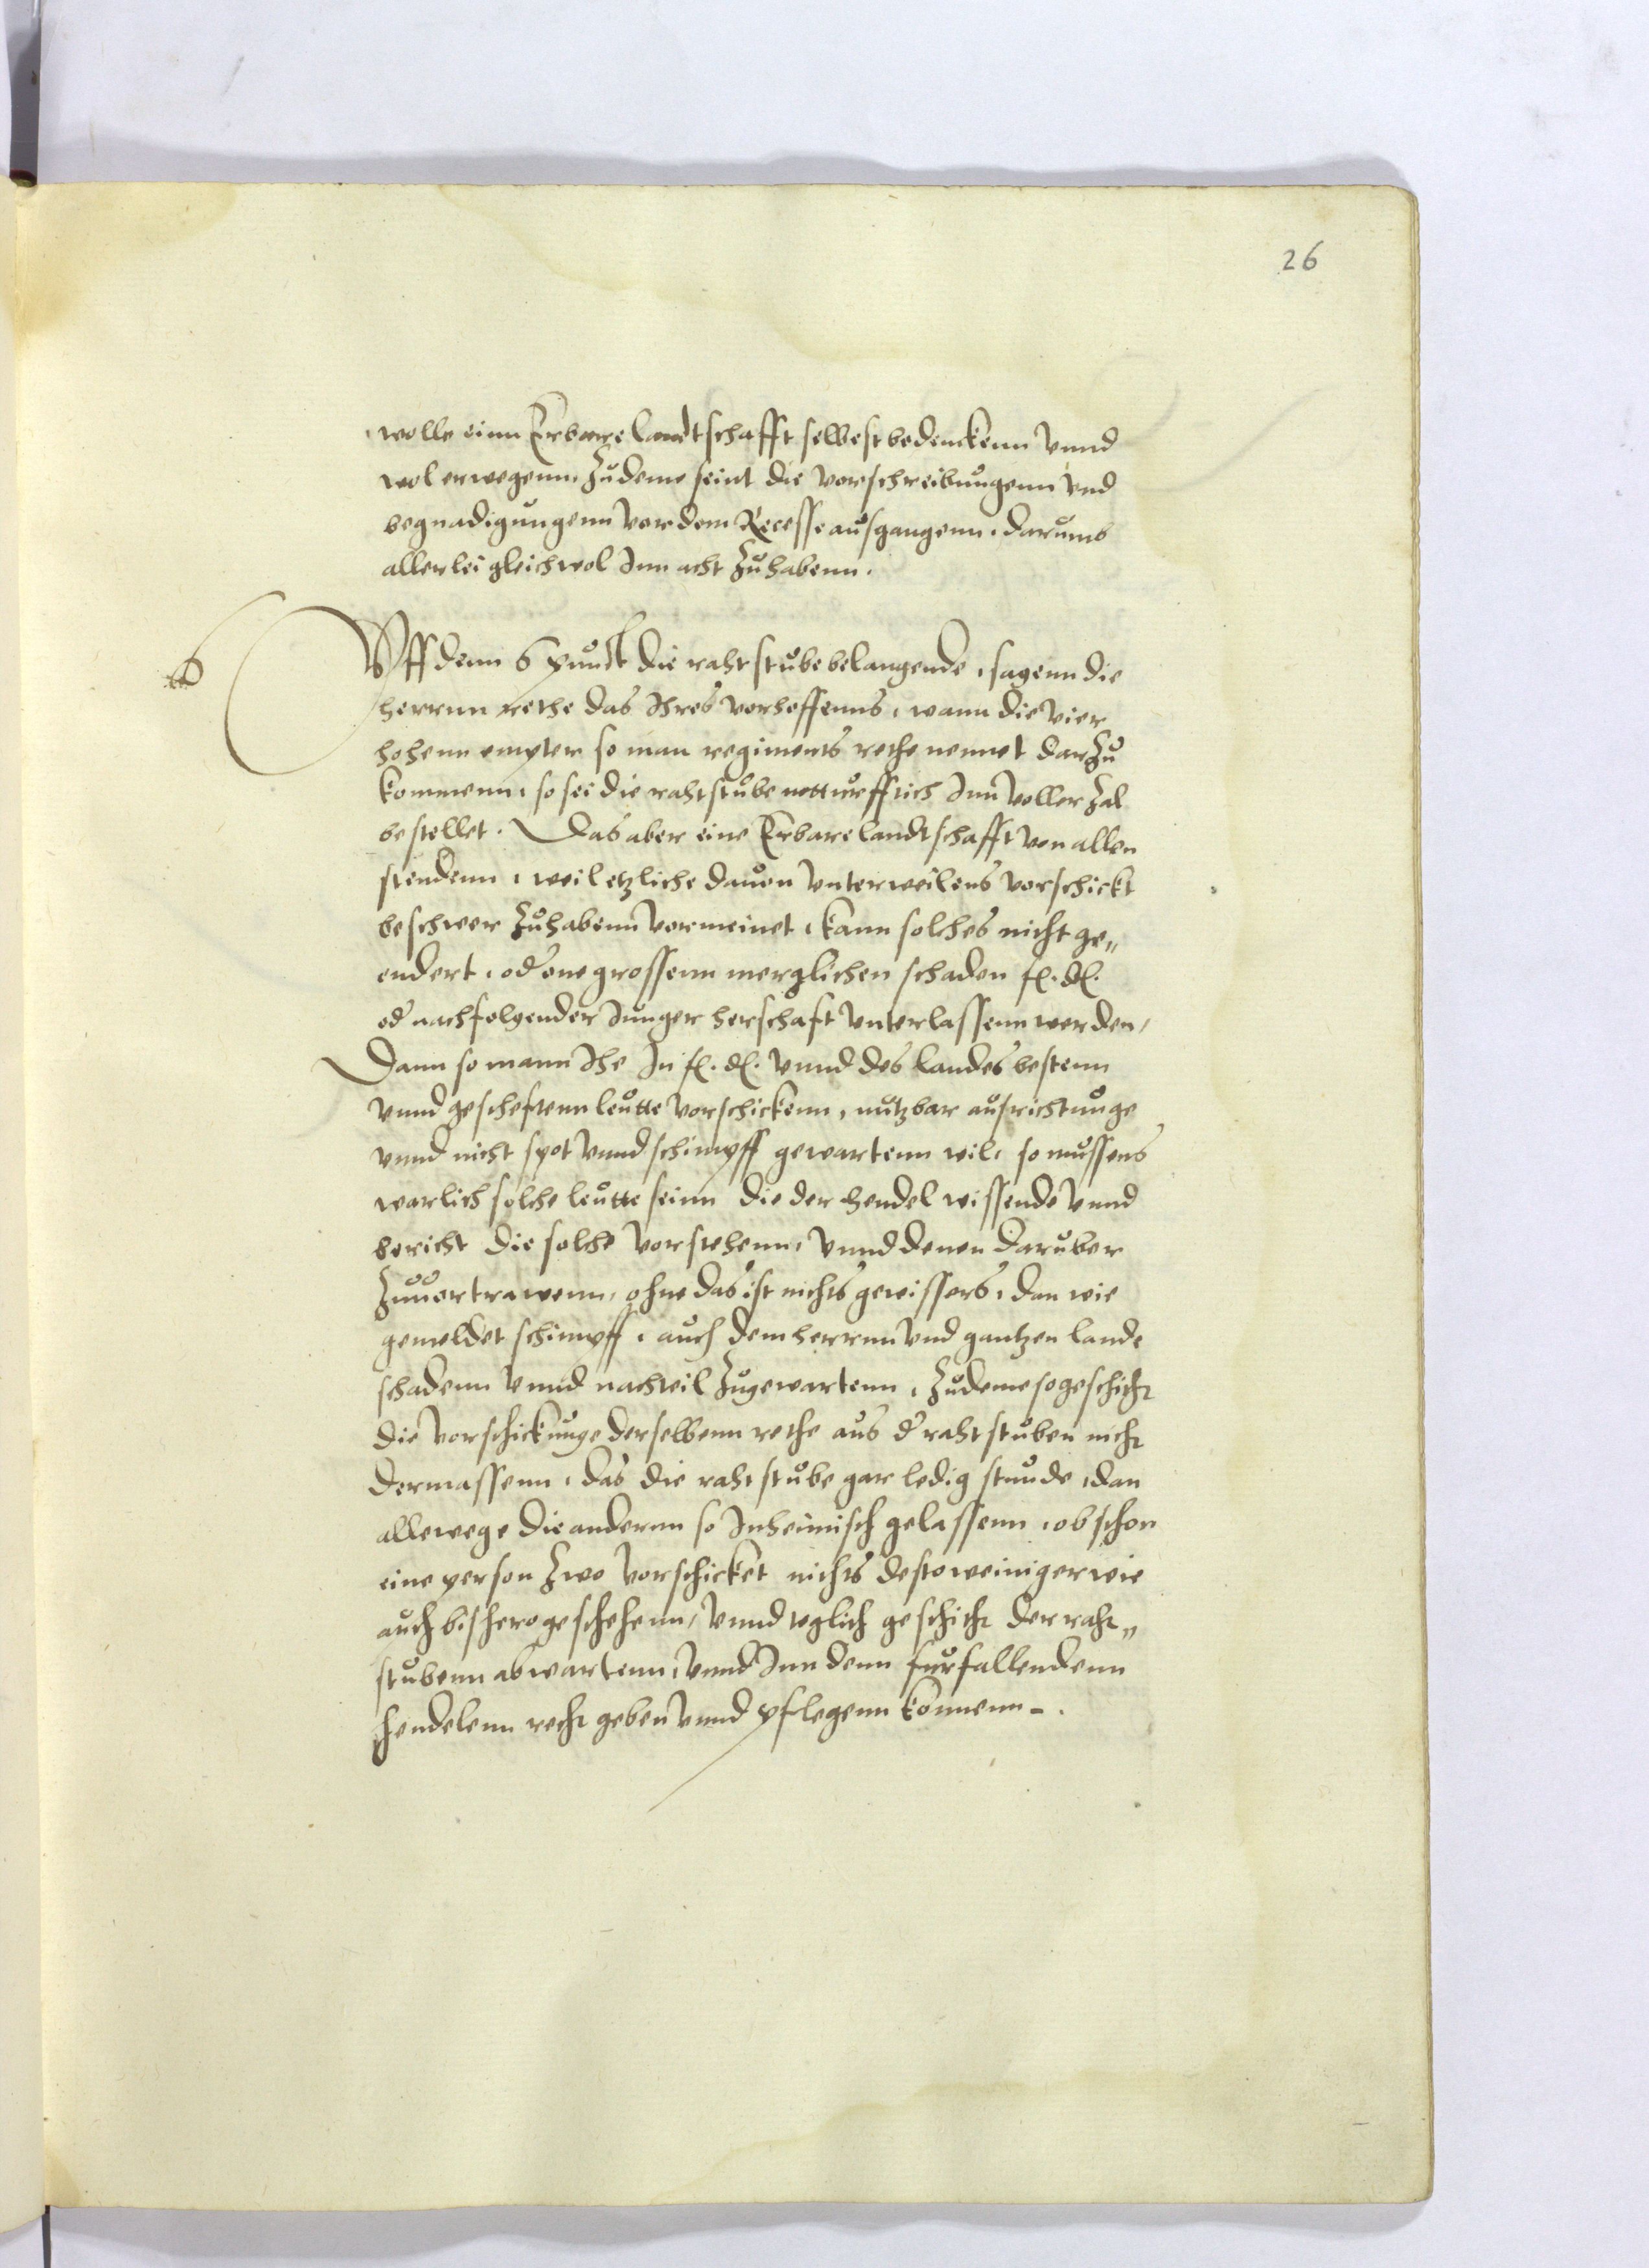 26
wolle einn Erbare landtschafft selbest bedenckenn vnnd
wol erwegenn, Zudeme seint die vorschreibungenn vnd
begnadigungenn vor dem Recesse ausgangenn, darumb
allerlei gleichwol Inn acht Zuhabenn.
6
Vff denn 6 punckt die rahtstube belangende, sagenn die
herrnn rethe das Ihres verhoffenns, wann die vier
hohenn empter so man regiments rethe nennet darzu
kommenn, so sei die rahtstube notturfftich Inn voller Zal
bestellet. Das aber eine Erbare landtschafft von allen
stendenn, weil etzliche dauon vnterweilens vorschickt
beschwer Zuhabenn vermeinet, kann solches nicht ge„
endert, od one grossenn mergklichen schaden f. d.
od nachfolgender Junger herschaft vnterlassenn werden,
Dann so mann Ihe In f. d. vnnd des landes bestenn
vnnd gescheftenn leutte vorschickenn, nutzbar ausrichtunge
vnnd nicht spot vnnd schimpff gewartenn wil, so mussens
warlich solche leutte seinn die der hendel wissende vnnd
bericht die solche vorstehenn, vnnd denen daruber
Zuuortrawenn, ohne das ist nichts gewissers, dan wie
gemeldet schimpff, auch dem herrnn vnd gantzen lande
schadenn vnnd nachteil Zugewartenn, Zudeme so geschicht
die vorschickunge derselbenn rethe aus d rahtstuben nicht
dermassenn, das die rahtstube gar ledig stunde, dan
allewege die andernn so Inheimisch gelassenn, ob schon
eine person Zwo vorschicket nichts destoweiniger wie
auch bishero geschehenn, vnnd teglich geschicht der raht„
stubenn abwartenn, vnnd Inn denn furfallendenn
hendelenn recht geben vnnd pflegenn konnenn.